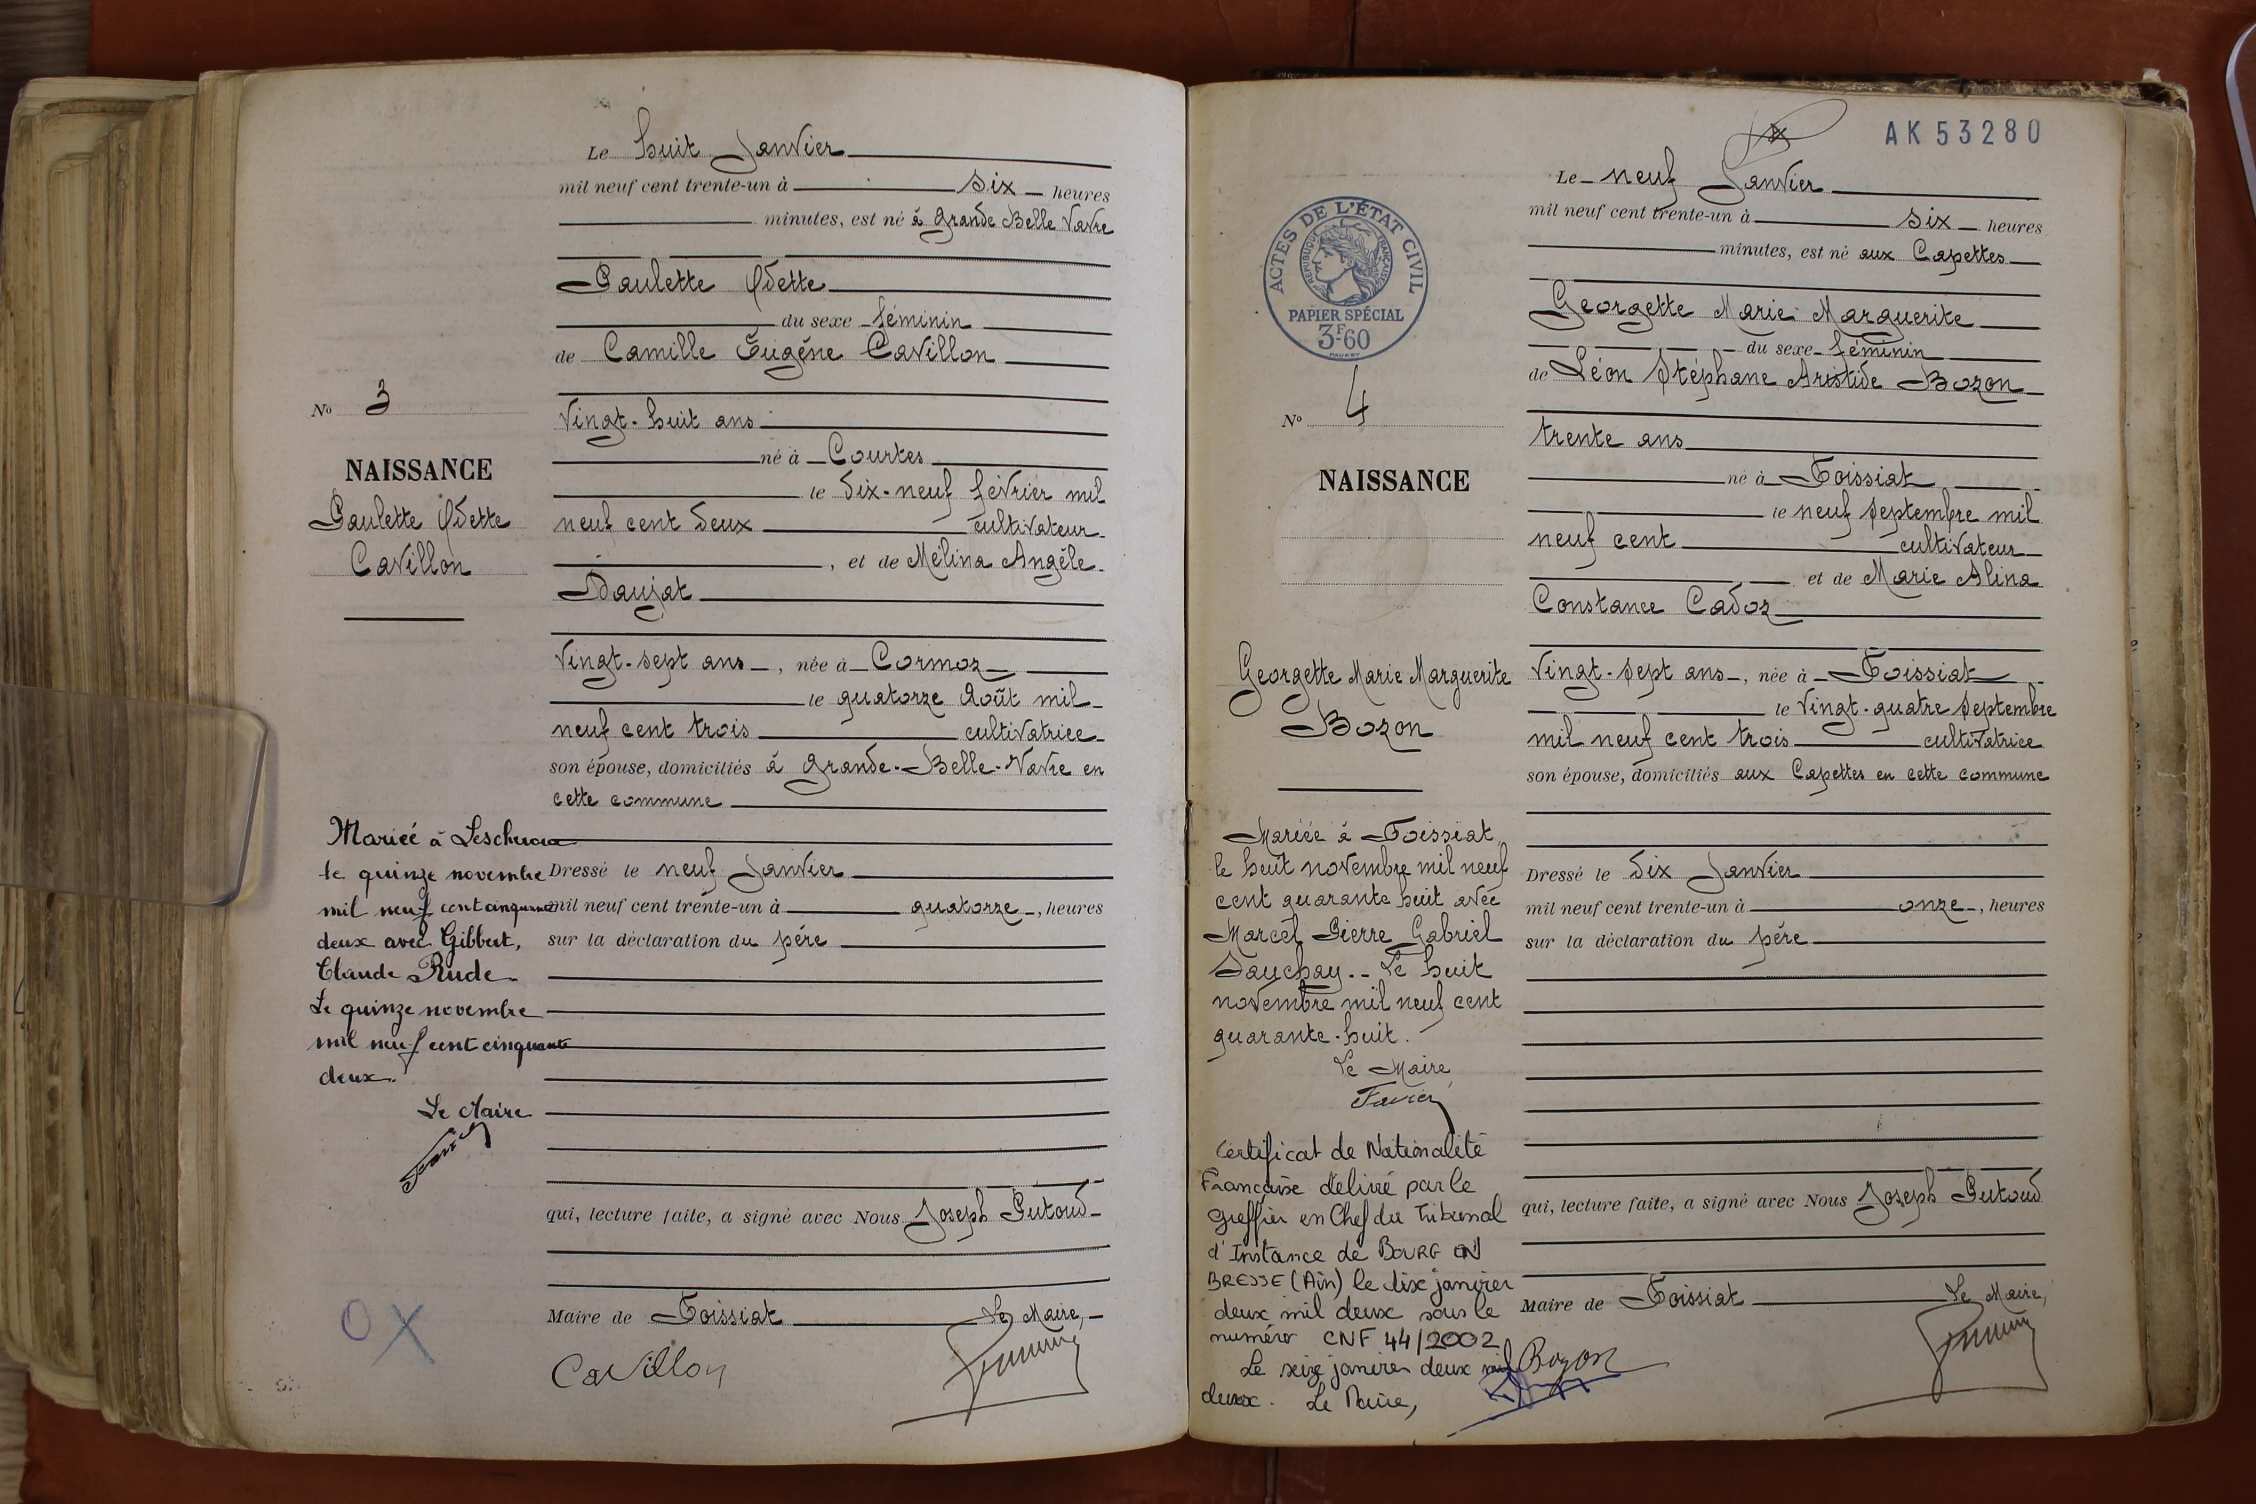 Le huit Janvier
mil neuf cent trente-un à six heures
minutes, est né à Grande Belle Vavre
Paulette Odette
du sexe féminin
de Camille Eugène Cavillon
No 3
vingt-huit ans
né à Courtes
NAISSANCE
le dix-neuf février mil
Paulette Odette
neuf cent deux cultivateur
Cavillon
, et de Mélina Angèle
Daujat
vingt-sept ans, née à Cormoz
le quatorze Août mil
neuf cent trois cultivatrice
son épouse, domiciliés à Grande-Belle-Vavre en
cette commune
Mariée à Lescheroux
le quinze novembre
mil neuf cent cinquante
deux avec Gilbert,
Claude Rude
Le quinze novembre
mil neuf cent cinquante
deux.
Le Maire
Dressé le neuf Janvier
mil neuf cent trente-un à quatorze, heures
sur la déclaration du père
qui, lecture faite, a signé avec Nous Joseph Putoud
Maire de Foissiat Le Maire,
OX
Cavillon
AK 53280
Le neuf Janvier
mil neuf cent trente-un à six heures
minutes, est né aux Capettes
ACTES DE L'ÉTAT CIVIL
RÉPUBLIQUE FRANÇAISE
PAPIER SPÉCIAL
3F60
Georgette Marie Marguerite
du sexe féminin
de Léon Stéphane Aristide Bozon
No 4
trente ans
né à Foissiat
NAISSANCE
le neuf Septembre mil
neuf cent cultivateur
et de Marie Alina
Constance Cadoz
Georgette Marie Marguerite
Bozon
vingt-sept ans, née à Foissiat
le vingt-quatre Septembre
mil neuf cent trois cultivatrice
son épouse, domiciliés aux Capettes en cette commune
Mariée à Foissiat
le huit novembre mil neuf
cent quarante huit avec
Marcel Pierre Gabriel
Dauchay.- Le huit
novembre mil neuf cent
quarante-huit.
Le Maire
Favier
Certificat de Nationalité
Française délivré par le
Greffier en Chef du Tribunal
d'Instance de BOURG EN
BRESSE (Ain) le dix janvier
deux mil deux sous le
numéro CNF 44/2002
Le seize janvier deux mil
deux. Le Maire,
Dressé le dix Janvier
mil neuf cent trente-un à onze, heures
sur la déclaration du père
qui, lecture faite, a signé avec Nous Joseph Putoud
Maire de Foissiat Le Maire,
Bozon